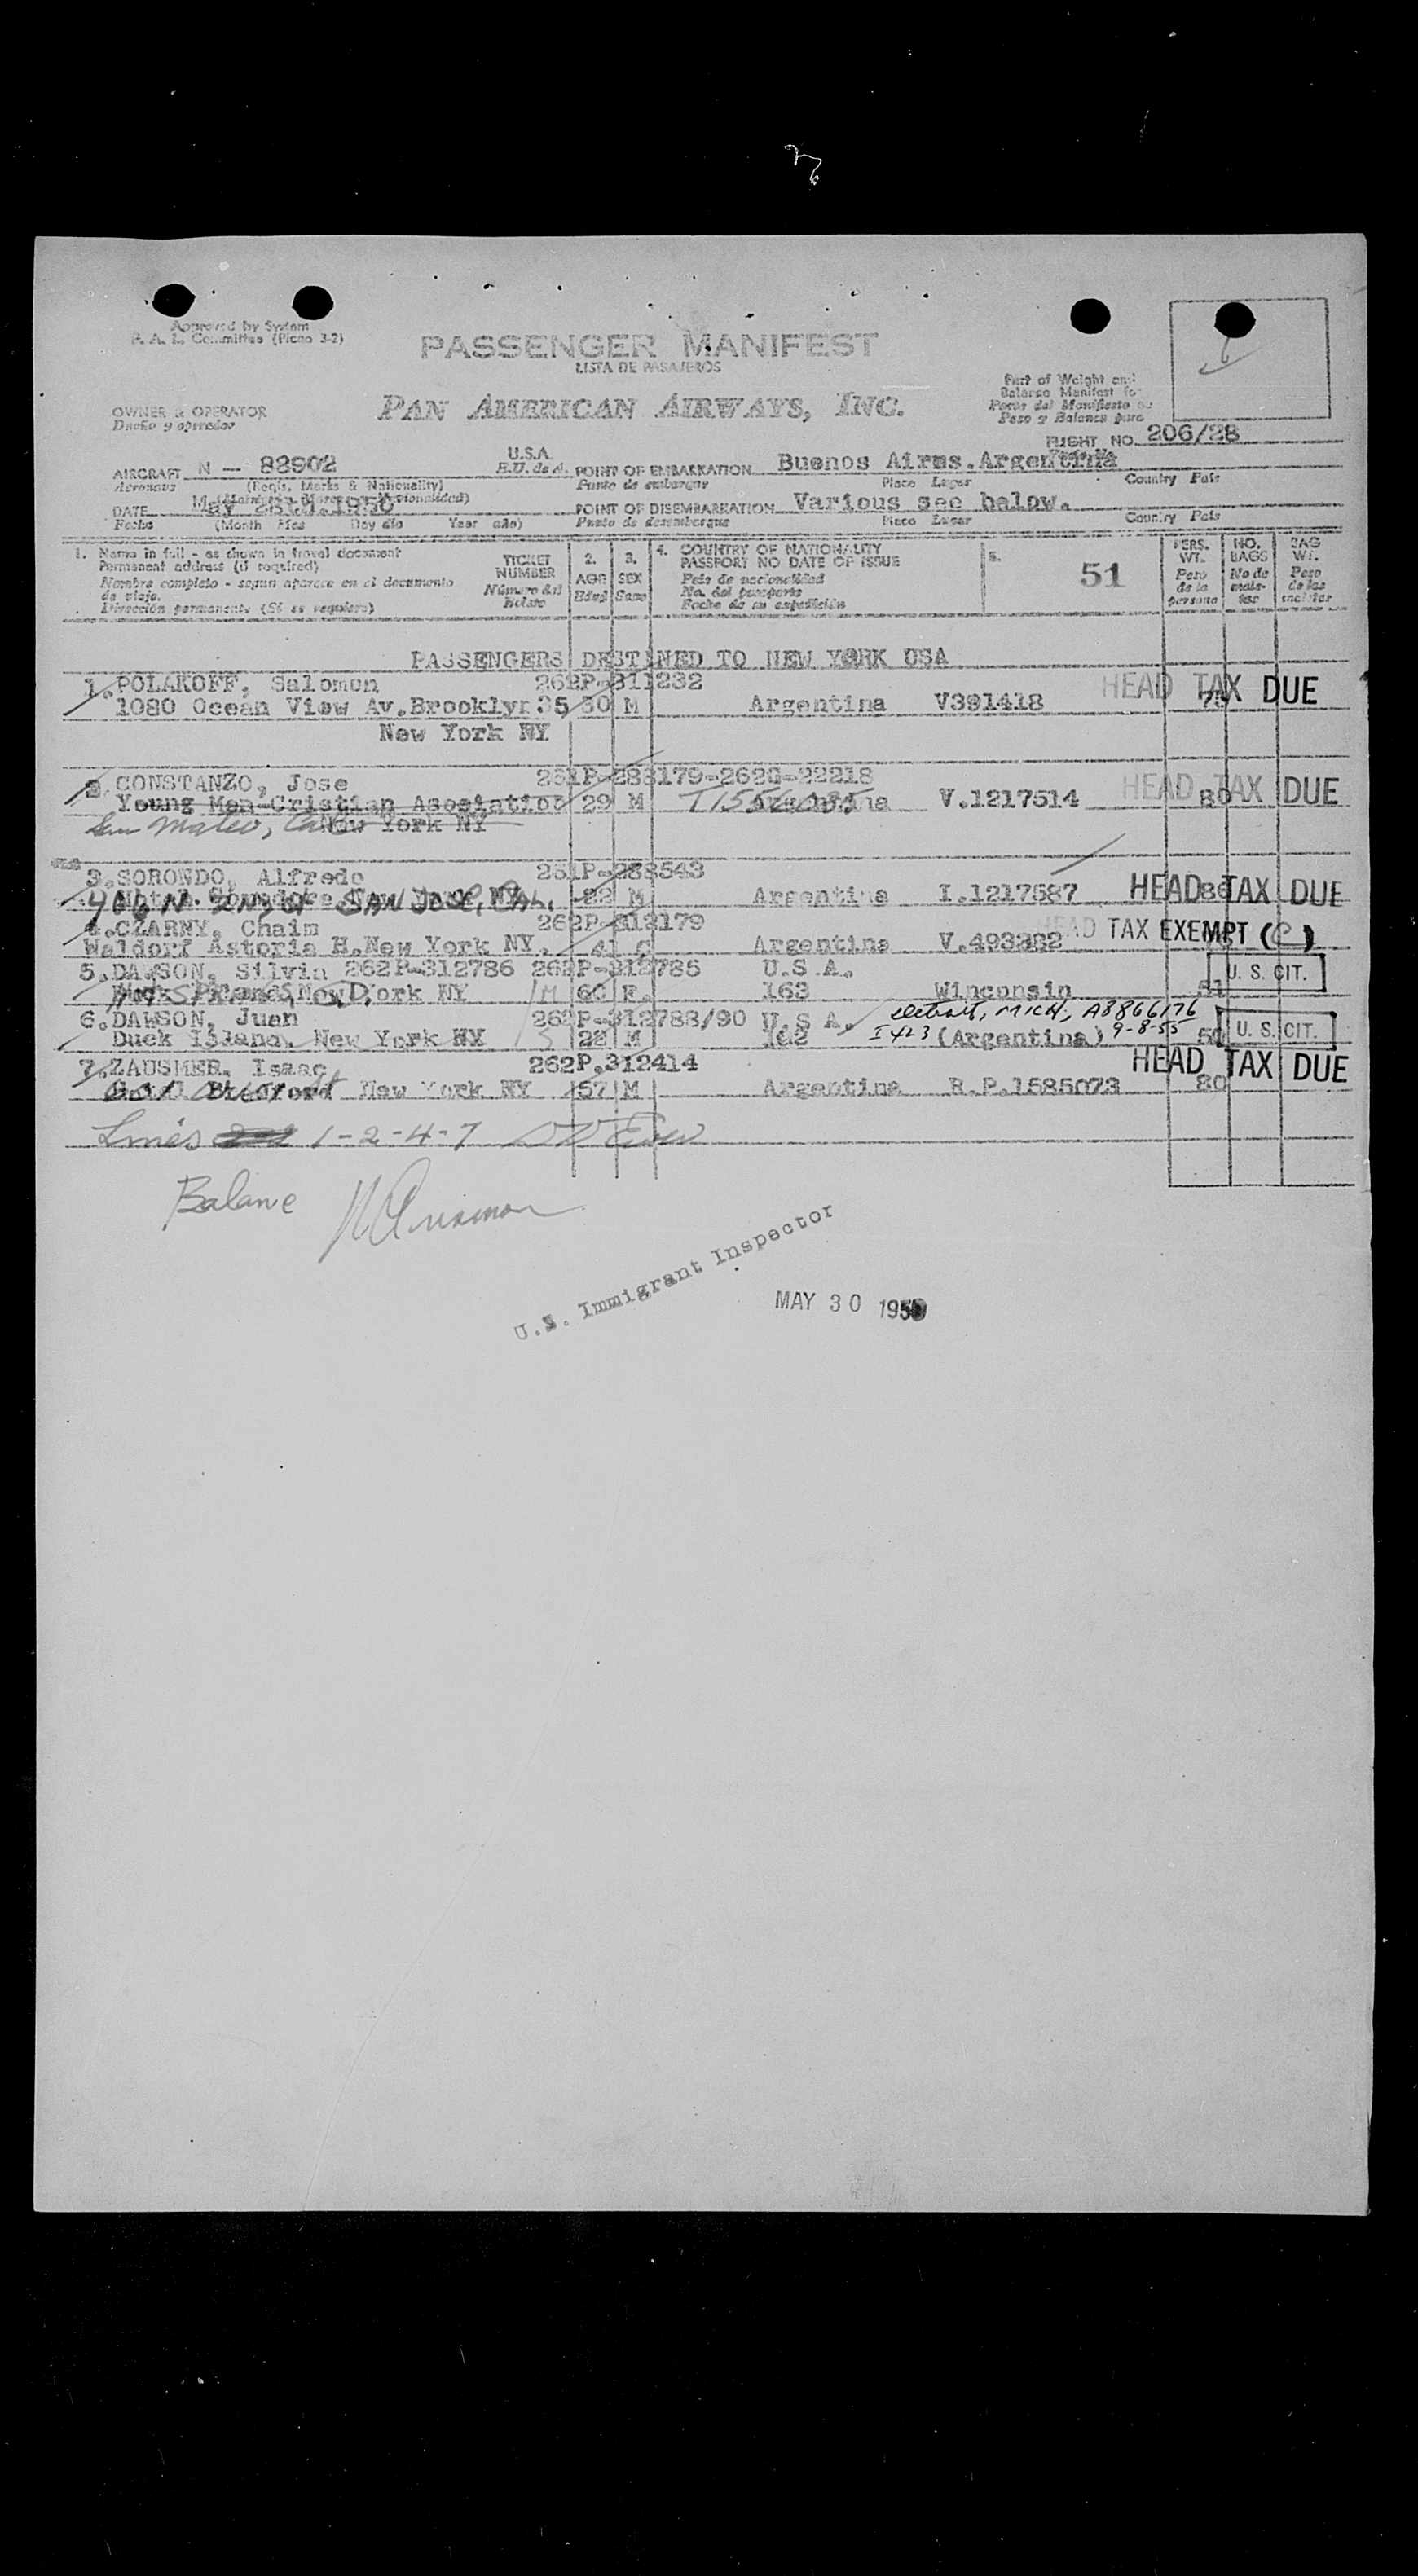 Approved by System
PASSENGER MANIFEST
LISTA DE PASAJEROS
PAN AMERICAN AIRWAYS, INC.
Part of Weight and
Balance Manifest for
Peso y Balance para
OWNER & OPERATOR
Dueño y operador
FLIGHT NO. 206/28
AIRCRAFT N - 88902
U.S.A.
E.U. de A.
POINT OF EMBARKATION Buenos Aires.Argentina
Aeronave
(Regis, Marks & Nationality)
Punto de embarque
Place Lugar
Country País
DATE May 28th.1950
POINT OF DISEMBARKATION Various see below.
Fecha
(Month Mes Day día Year año)
Punto de desembarque
Place Lugar
Country País
1. Name in full - as shown in travel document
Permanent address (if required)
Nombre completo - segun aparece en el documento
de viaje.
Dirección permanente (Si se requiere)
TICKET
NUMBER
Número del
Boleto
2.
AGE
Edad
3.
SEX
Sexo
4. COUNTRY OF NATIONALITY
PASSPORT NO DATE OF ISSUE
País de nacionalidad
No. del pasaporte
Fecha de su expedición
5.
51
PERS.
WT.
Peso
de la
persona
NO.
BAGS
No de
male-
tas
BAG
WT.
Peso
de las
maletas
PASSENGERS DESTINED TO NEW YORK USA
1.POLAKOFF, Salomon 262P-311232
HEAD TAX DUE
1080 Ocean View Av.Brooklyn 35 50 M Argentina V391418
New York NY
2.CONSTANZO, Jose 261P-288179-262G-22218
HEAD TAX DUE
Young Men-Cristian Asociation 29 M V.1217514 80
San Mateo, New York NY
3.SORONDO, Alfredo 261P-288543
406 N 2nd St SAN JOSE, CAL. M Argentina I.1217587 HEAD TAX DUE
4.CZARNY, Chaim 262P-312179
HEAD TAX EXEMPT (C)
Waldorf Astoria H.New York NY. 41 Argentina
5.DAWSON, Silvia 262P-312786 262P-312785 U.S.A.
U. S. CIT.
York NY 60 F. 163 Winconsin 51
6.DAWSON, Juan 262P-312788/90 U.S.A. Detroit, MICH, A8866176
Duck Island, New York NY 28 M 162 I 423 (Argentina) 9-8-55
U. S. CIT.
7.ZAUSMER, Isaac 262P.312414
HEAD TAX DUE
New York NY 57 M Argentina R.P.1585073 80
Lines 1-2-4-7
Balance
U.S. Immigrant Inspector
MAY 30 1950